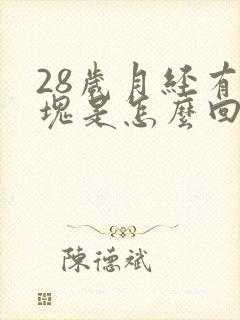 28歲月經有
塊是怎麼回
陳德斌